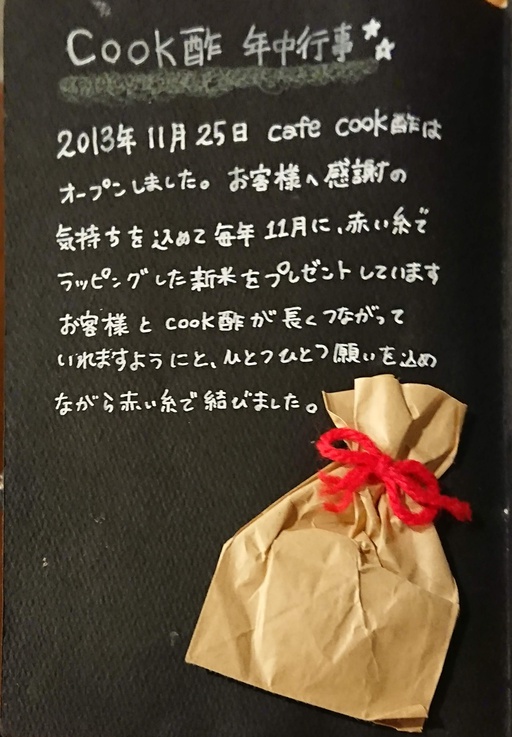 Cook酢 年中行事
2013年 11月 25日 cafe cook酢は
オープンしました。お客様へ感謝の
気持ちを込めて毎年 11月に、赤い糸で
ラッピングした新米をプレゼントしています
お客様と cook酢が長くつながって
いれますようにと、ひとつひとつ願いを込め
ながら赤い糸で結びました。